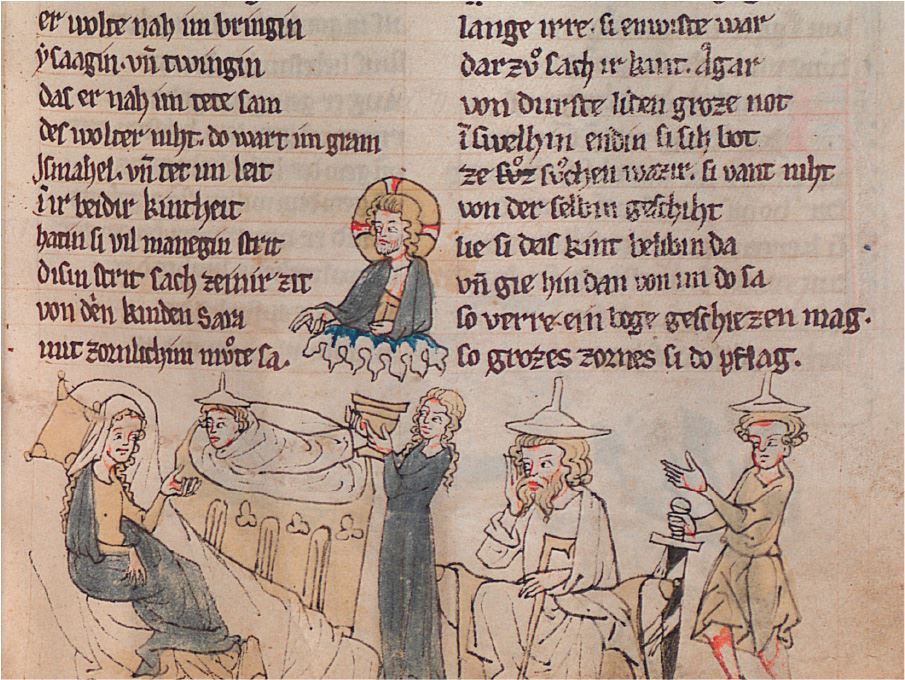 er wolte nah im bringin
ysaagin · vn̄ twingin
das er nah im tete sam
des wolter niht · do wart im gram
Jsmahel · vn̄ tet im leit
ī ir beidir kintheit
hatin si vil manegin strit
disin strit sach zeinir zit
von den kindin Sara
mit zornlichim mͦte sa .
lange irre · si enwiste war
dar zvͦ sach ir kint · Agar
von durste liden groze not
ī swelhin endin si sih bot
ze sͮchen wazir · si vant niht
von der selbin geschiht
lie si das kint belibin da
vn̄ gie hin dan von im do sa
so verre · ein boge geschiezen mag ·
so grozes zornes si do pflag ·